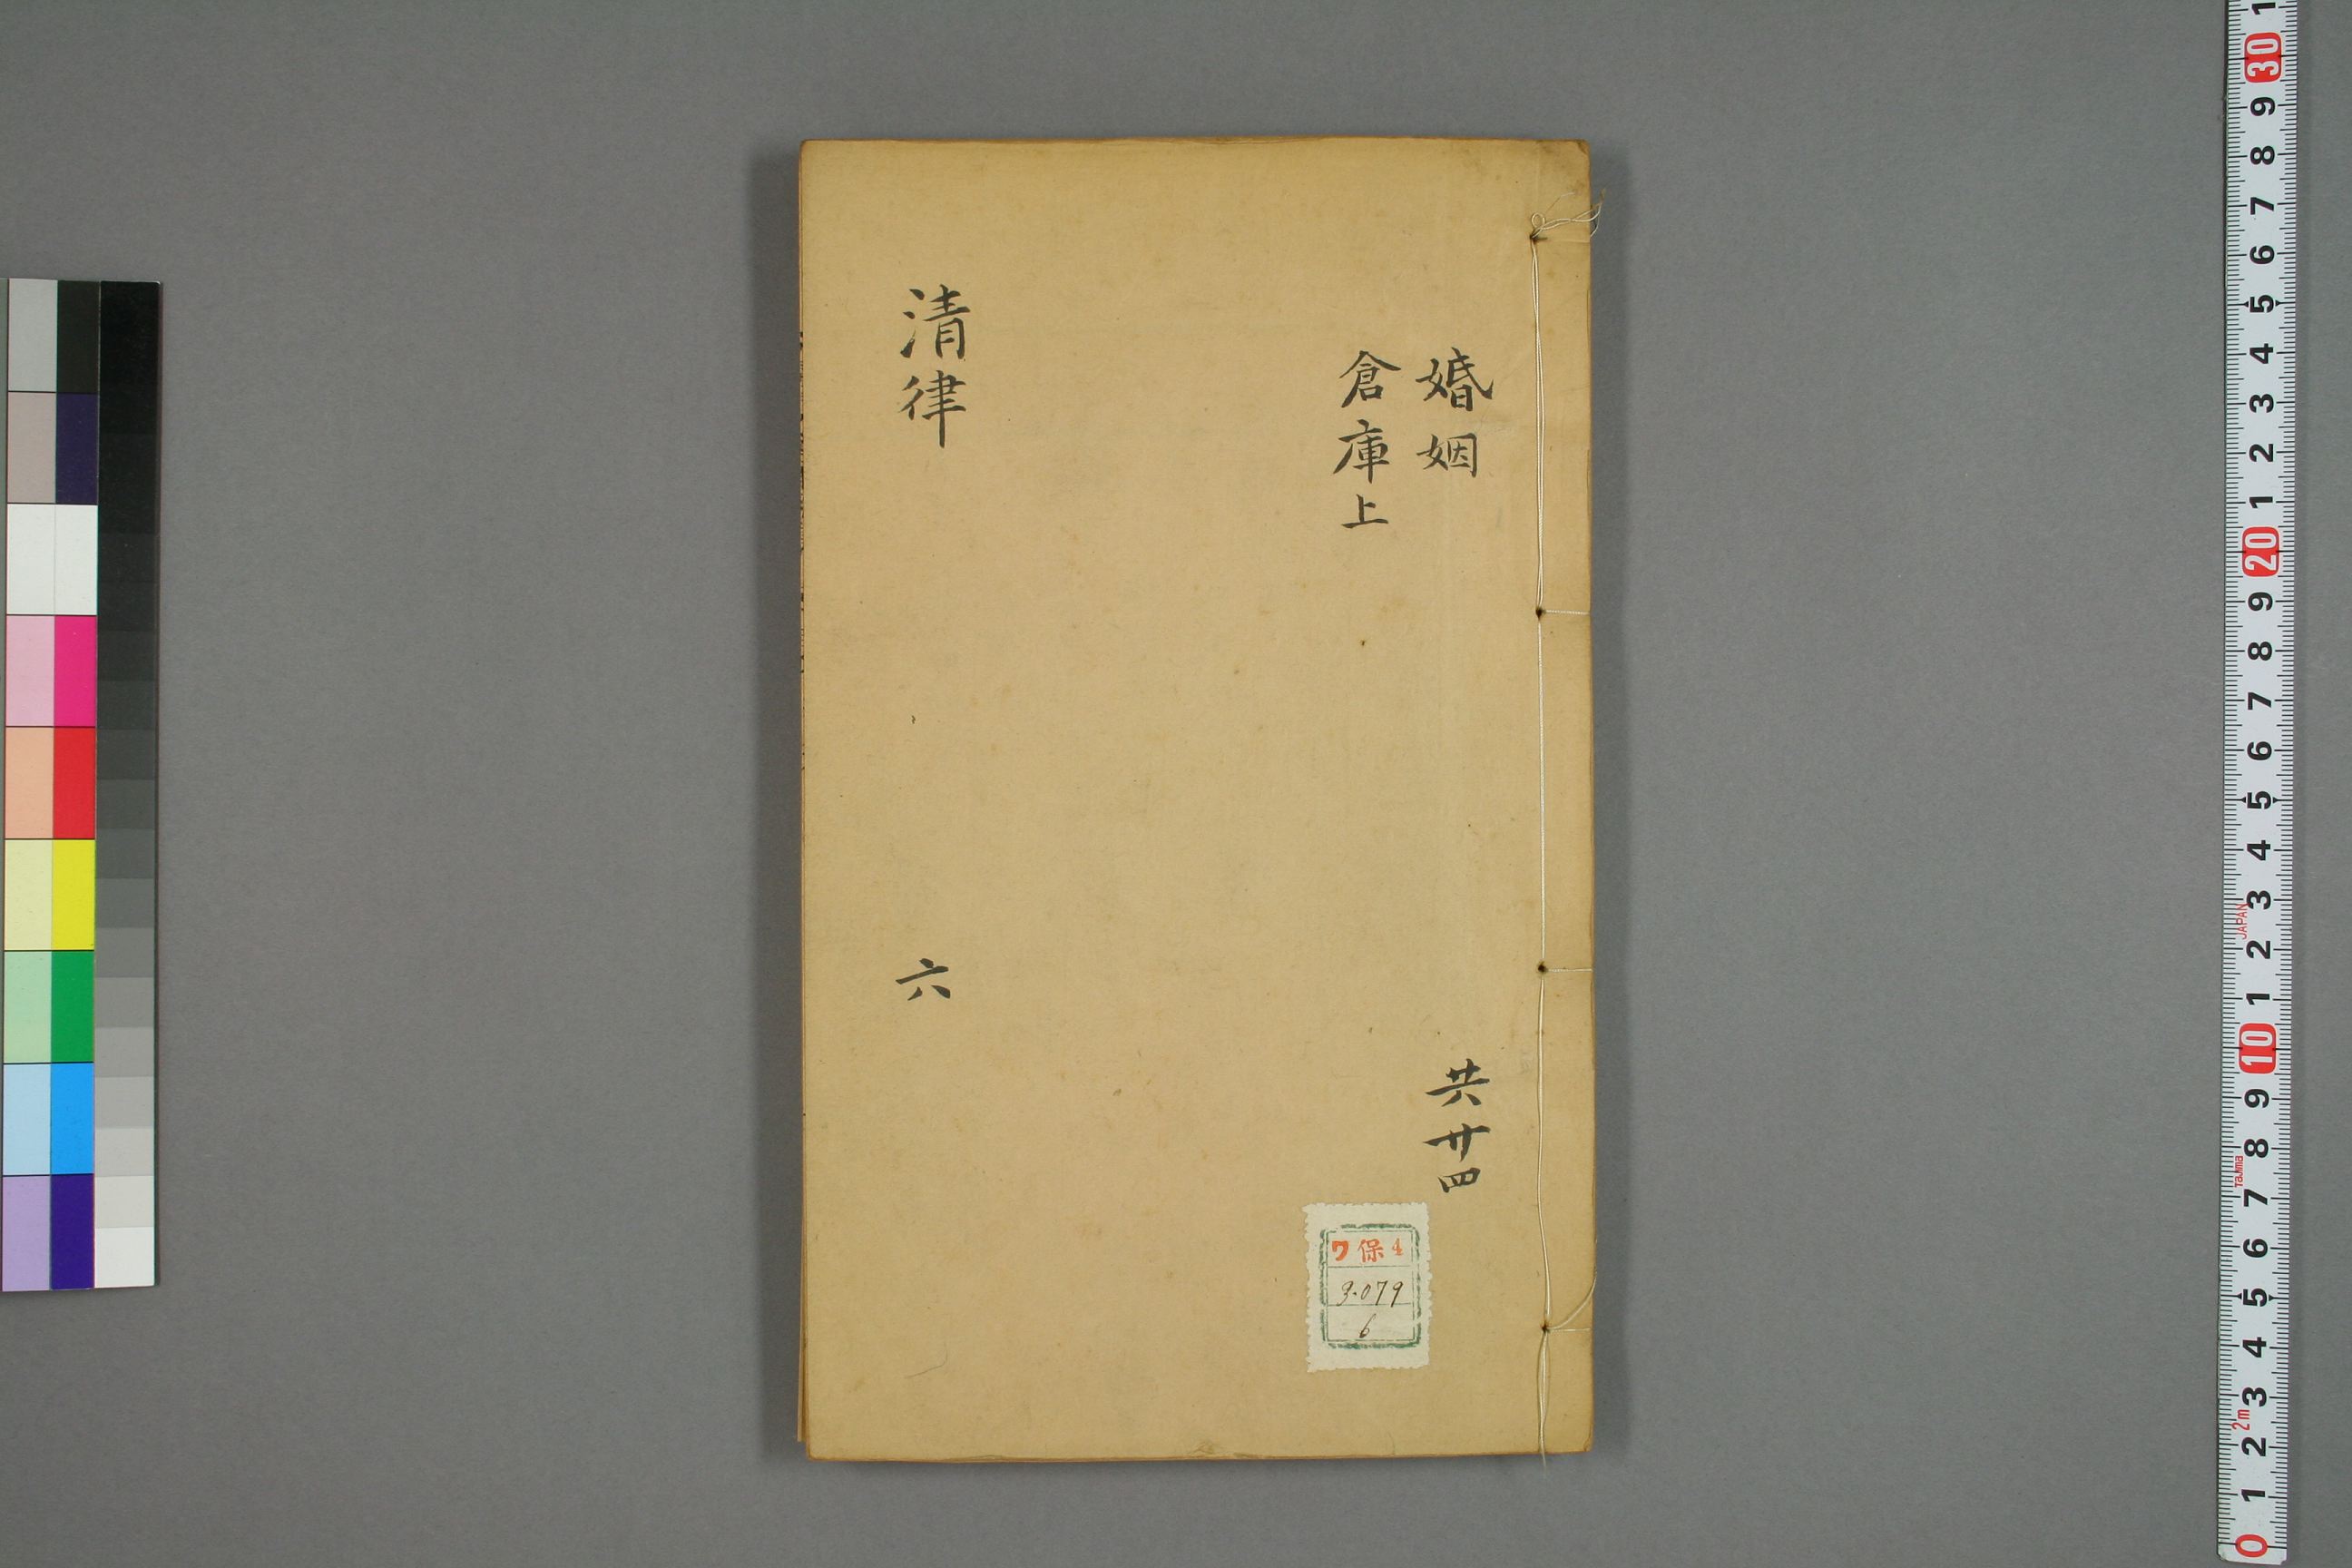 婚姻
倉庫上
共廿四
清律
六
ワ保4
3.079
6
1 2 3 4 5 6 7 8 9 10 1 2 3 4 5 6 7 8 9 20 1 2 3 4 5 6 7 8 9 30 1
0
2m
Tajima
JAPAN